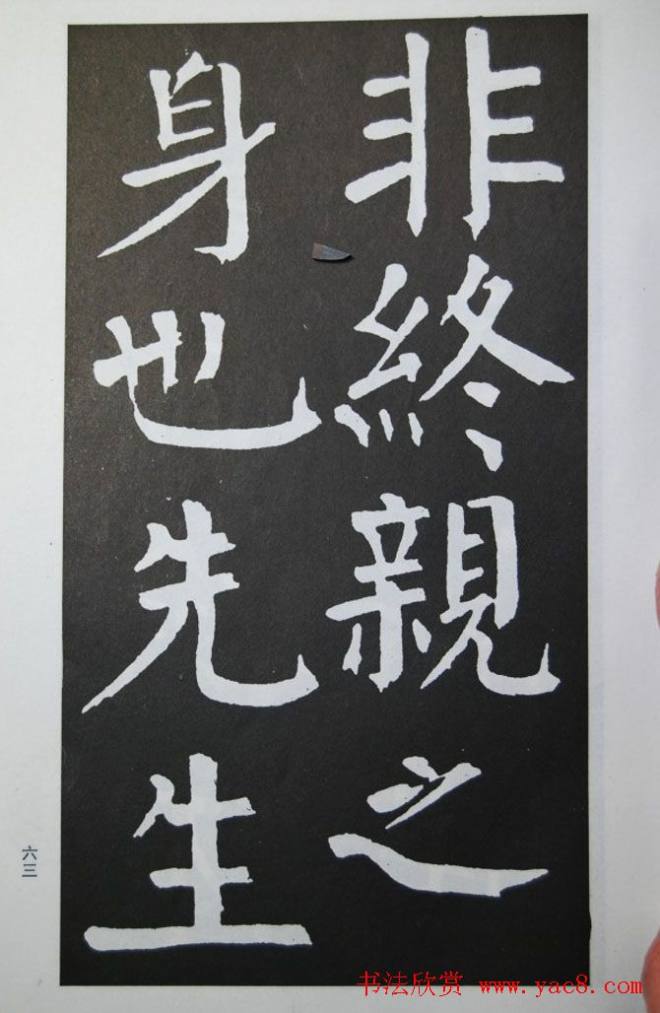 非終親之
身也先生
六三
书法欣赏 www.yac8.com